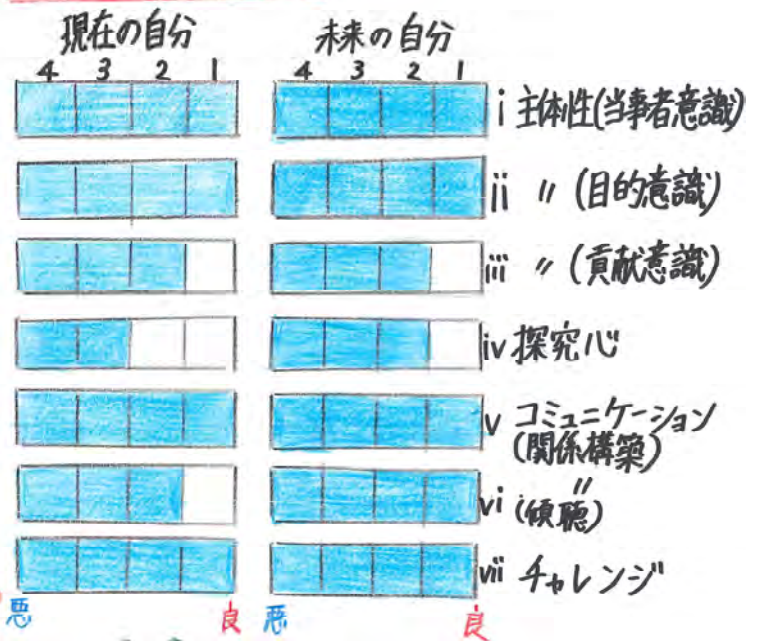 現在の自分 未来の自分
4 3 2 1 4 3 2 1
i 主体性(当事者意識)
ii 〃 (目的意識)
iii 〃 (貢献意識)
iv 探究心
v コミュニケーション
(関係構築)
vi 〃
(傾聴)
vii チャレンジ
悪 良 悪 良